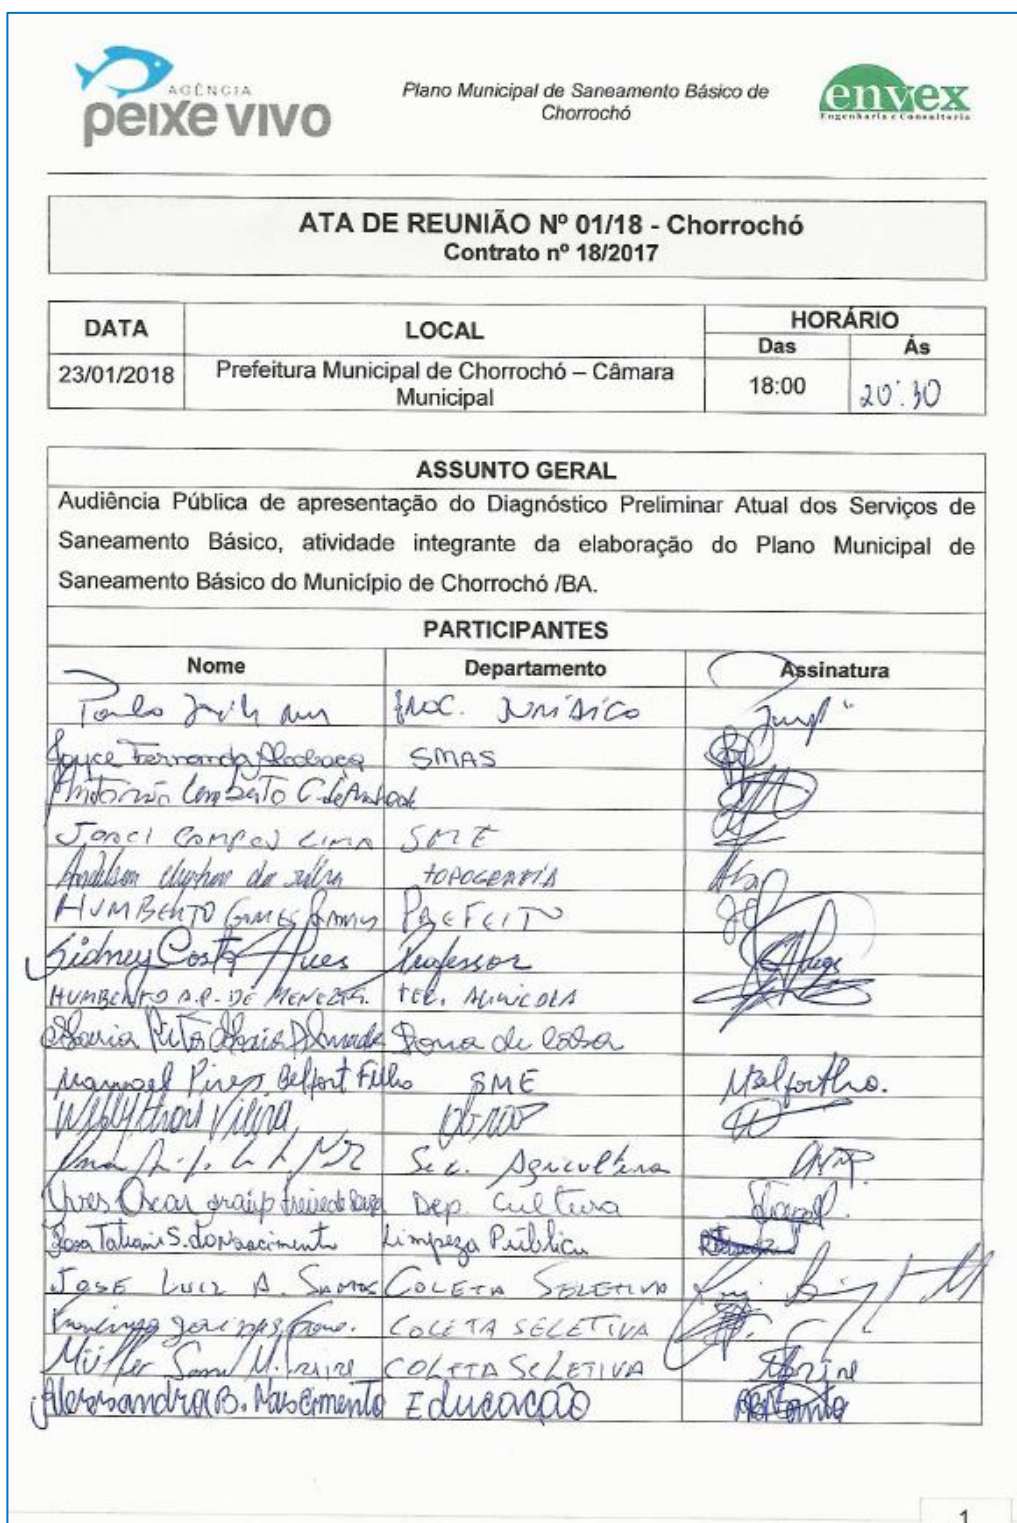 AGÊNCIA
peixe vivo
Plano Municipal de Saneamento Básico de
Chorrochó
envex
Engenharia e Consultoria
ATA DE REUNIÃO Nº 01/18 - Chorrochó
Contrato nº 18/2017
DATA LOCAL HORÁRIO
Das Às
23/01/2018 Prefeitura Municipal de Chorrochó – Câmara
Municipal 18:00 20:30
ASSUNTO GERAL
Audiência Pública de apresentação do Diagnóstico Preliminar Atual dos Serviços de
Saneamento Básico, atividade integrante da elaboração do Plano Municipal de
Saneamento Básico do Município de Chorrochó /BA.
PARTICIPANTES
Nome Departamento Assinatura
Joyce Fernanda SMAS
Campos Lima SME
da Silva TOPOGRAFIA
HUMBERTO GOMES RAMOS PREFEITO
Sidney Costa Professor
HUMBERTO A.P. DE MENEZES. TEC. AGRICOLA
Maria Rita Dona de Casa
Manoel Pires Belfort Filho SME
Sec. Agricultura
Yves Oscar Dep. Cultura
Rosa Tatiani S. do Nascimento Limpeza Pública
JOSE LUIZ A. SANTOS COLETA SELETIVA
COLETA SELETIVA
Müller COLETA SELETIVA
Alessandra B. Nascimento Educação
1